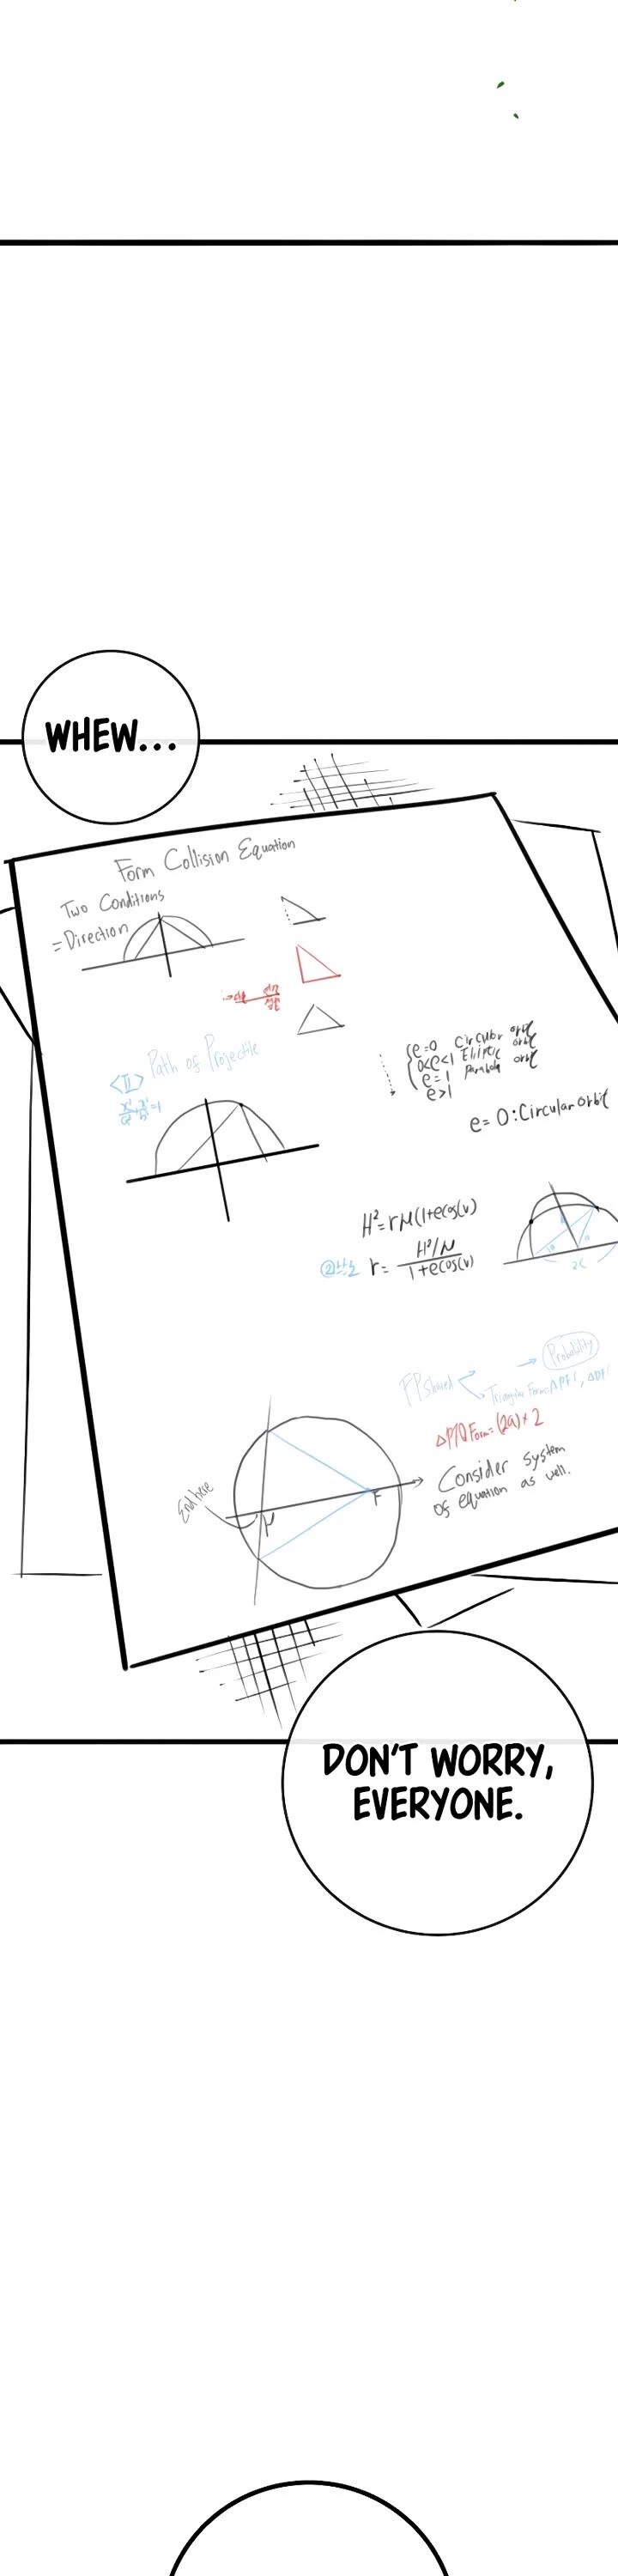 WHEW...
Form Collision Equation
Two Conditions
=Direction
<II> Path of Projectile
e=0 Circular orbit
0<e<1 Eliptic orbit
e=1 Parabola orbit
e>1
e=0:Circular orbit
H²=rμ(1+ecos(v)
② r= H²/μ / 1+ecos(v)
2C
Probability
FP shared
Triangular Form
Form=(2a)×2
Consider system
of equation as well.
End here
F
μ
DON'T WORRY,
EVERYONE.